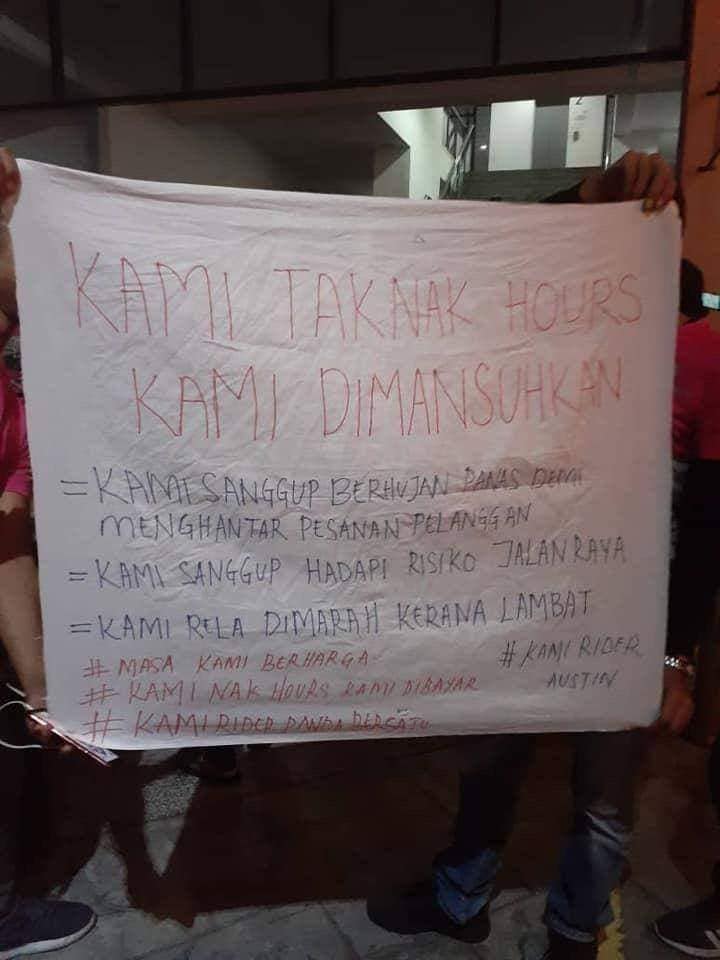 KAMI TAKNAK HOURS
KAMI DIMANSUHKAN
= KAMI SANGGUP BERHUJAN PANAS DEMI
MENGHANTAR PESANAN PELANGGAN
= KAMI SANGGUP HADAPI RISIKO JALAN RAYA
= KAMI RELA DIMARAH KERANA LAMBAT
# MASA KAMI BERHARGA
# KAMI NAK HOURS KAMI DIBAYAR
# KAMI RIDER PANDA BERSATU
# KAMI RIDER
AUSTIN
2